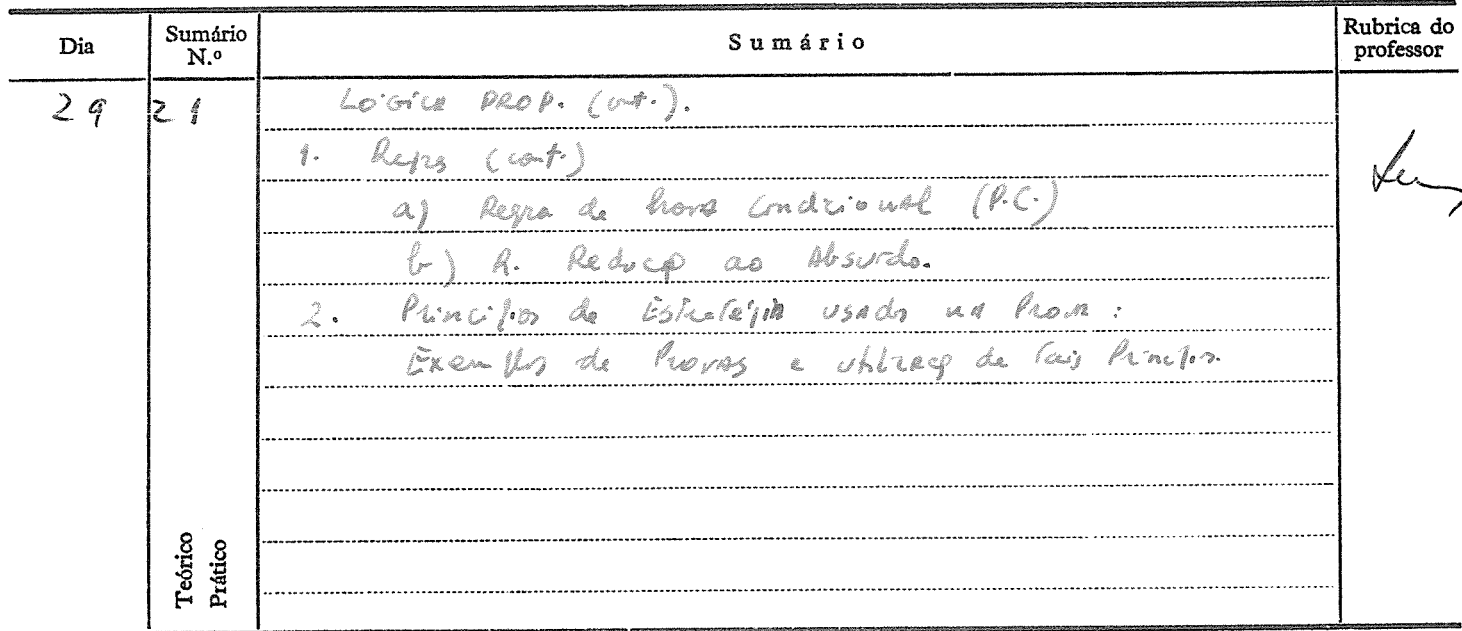 Dia
Sumário N.º
Sumário
Rubrica do professor
29 21 LÓGICA PROP. (cont.).
1. Regras (cont.)
a) Regra de Prova Condicional (P.C.)
b) R. Redução ao Absurdo.
2. Princípios de Estratégia usados na Prova:
Exemplos de Provas e utilização de Tais Princípios.
Teórico
Prático